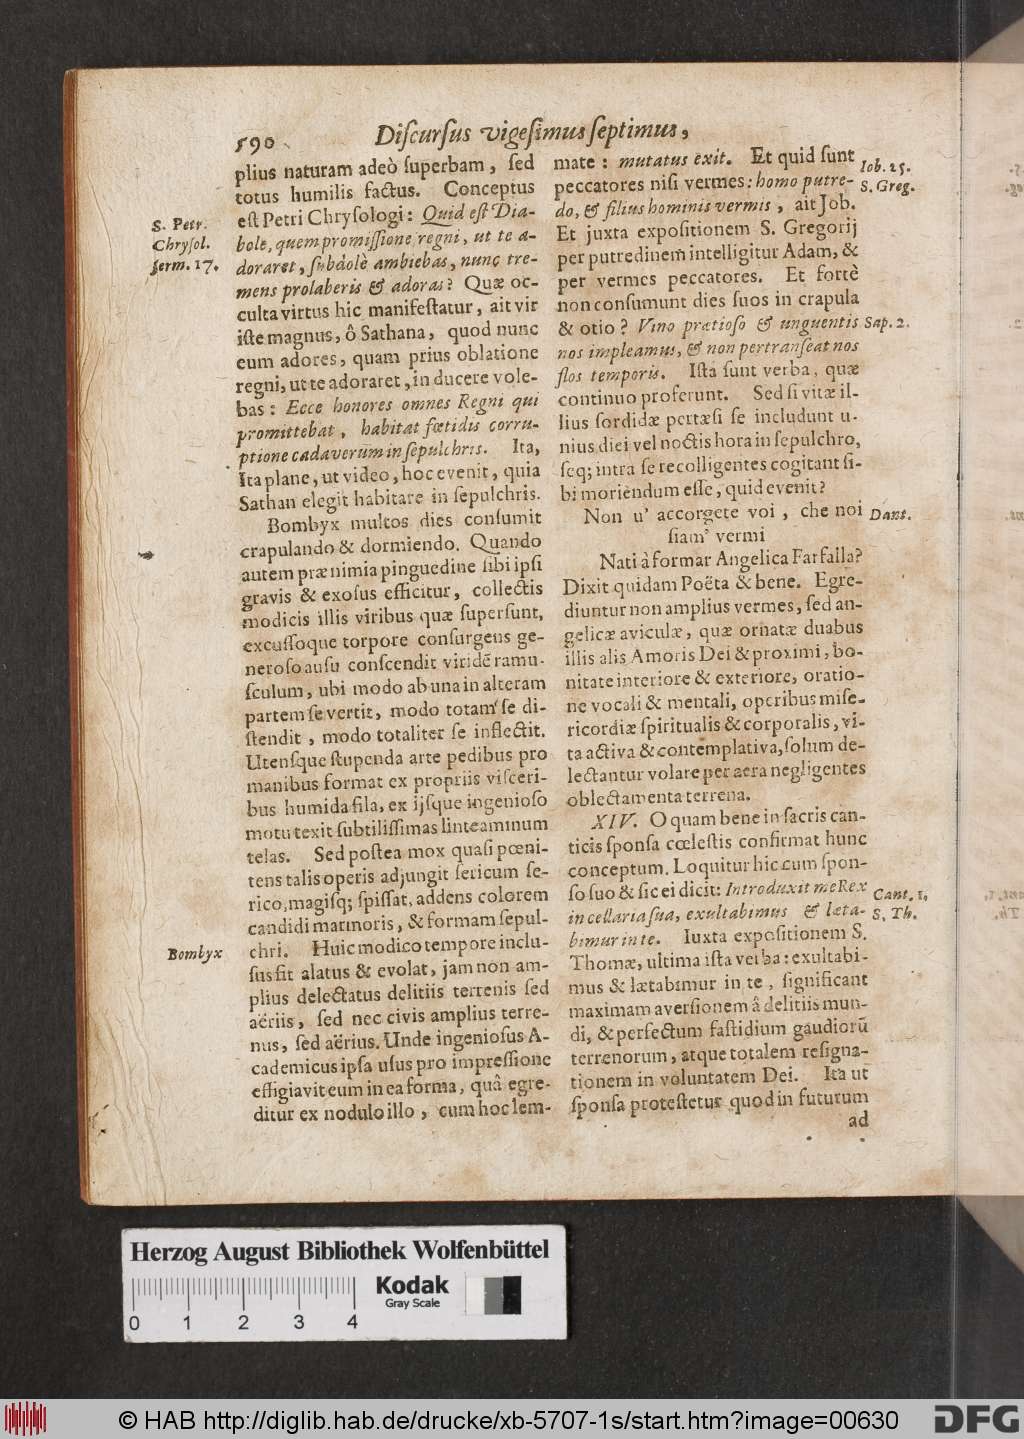 590
Discursus vigesimus septimus,
plius naturam adeò superbam, sed
totus humilis factus. Conceptus
est Petri Chrysologi: Quid est Dia-
bole, quem promissione regni, ut te a-
doraret, subdolè ambiebas, nunc tre-
mens prolaberis & adoras? Quæ oc-
culta virtus hic manifestatur, ait vir
iste magnus, ô Sathana, quod nunc
eum adores, quam prius oblatione
regni, ut te adoraret, in ducere vole-
bas: Ecce honores omnes Regni qui
promittebat, habitat fœtidis corru-
ptione cadaverum in sepulchris. Ita,
Ita plane, ut video, hoc evenit, quia
Sathan elegit habitare in sepulchris.
Bombyx multos dies consumit
crapulando & dormiendo. Quando
autem præ nimia pinguedine sibi ipsi
gravis & exosus efficitur, collectis
modicis illis viribus quæ supersunt,
excussoque torpore consurgens ge-
neroso ausu conscendit viridẽ ramu-
sculum, ubi modo ab una in alteram
partem se vertit, modo totam se di-
stendit, modo totaliter se inflectit.
Utensque stupenda arte pedibus pro
manibus format ex propriis visceri-
bus humida fila, ex ijsque ingenioso
motu texit subtilissimas linteaminum
telas. Sed postea mox quasi pœni-
tens talis operis adjungit sericum se-
rico, magisq; spissat, addens colorem
candidi marmoris, & formam sepul-
chri. Huic modico tempore inclu-
sus fit alatus & evolat, jam non am-
plius delectatus delitiis terrenis sed
aëriis, sed nec civis amplius terre-
nus, sed aërius. Unde ingeniosus A-
cademicus ipsa usus pro impressione
effigiavit eum in ea forma, quâ egre-
ditur ex nodulo illo, cum hoc lem-
S. Petr.
Chrysol.
serm. 17.
Bombyx
mate: mutatus exit. Et quid sunt
peccatores nisi vermes: homo putre-
do, & filius hominis vermis, ait Job.
Et juxta expositionem S. Gregorij
per putredinem intelligitur Adam, &
per vermes peccatores. Et fortè
non consumunt dies suos in crapula
& otio? Vino prætioso & unguentis
nos impleamus, & non pertranseat nos
flos temporis. Ista sunt verba, quæ
continuo proferunt. Sed si vitæ il-
lius sordidæ pertæsi se includunt u-
nius diei vel noctis hora in sepulchro,
seq; intra se recolligentes cogitant si-
bi moriendum esse, quid evenit?
Non u' accorgete voi, che noi
siam' vermi
Nati à formar Angelica Farfalla?
Dixit quidam Poëta & bene. Egre-
diuntur non amplius vermes, sed an-
gelicæ aviculæ, quæ ornatæ duabus
illis alis Amoris Dei & proximi, bo-
nitate interiore & exteriore, oratio-
ne vocali & mentali, operibus mise-
ricordiæ spiritualis & corporalis, vi-
ta activa & contemplativa, solum de-
lectantur volare per aera negligentes
oblectamenta terrena.
XIV. O quam bene in sacris can-
ticis sponsa cœlestis confirmat hunc
conceptum. Loquitur hic cum spon-
so suo & sic ei dicit: Introduxit me Rex
in cellaria sua, exultabimus & læta-
bimur in te. Iuxta expositionem S.
Thomæ, ultima ista verba: exultabi-
mus & lætabimur in te, significant
maximam aversionem â delitiis mun-
di, & perfectum fastidium gaudiorũ
terrenorum, atque totalem resigna-
tionem in voluntatem Dei. Ita ut
sponsa protestetur quod in futurum
ad
Iob. 25.
S. Greg.
Sap. 2.
Dant.
Cant. 1,
S. Th.
Herzog August Bibliothek Wolfenbüttel
Kodak
Gray Scale
0 1 2 3 4
© HAB http://diglib.hab.de/drucke/xb-5707-1s/start.htm?image=00630
DFG